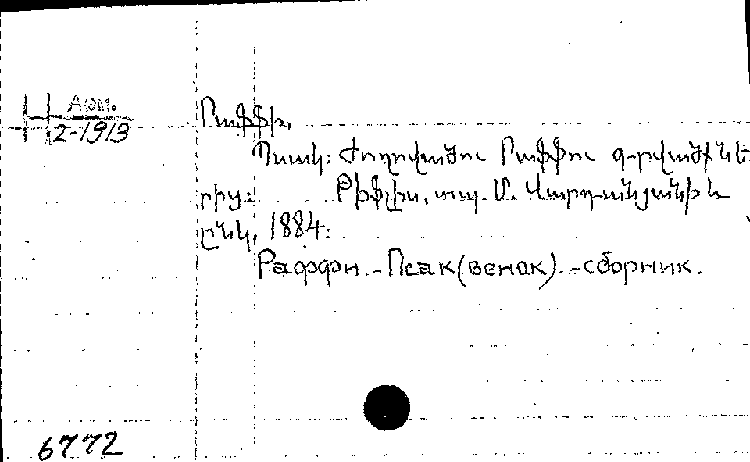 Арм.
2-1913
Րաֆֆի,
Պսակ: Ժողովածու Րաֆֆու գրվածքնե
րից: Թիֆլիս, տպ. Մ. Վարդանյանի և
ընկ, 1884:
Раффи. - Псак (венок). - сборник.
6772